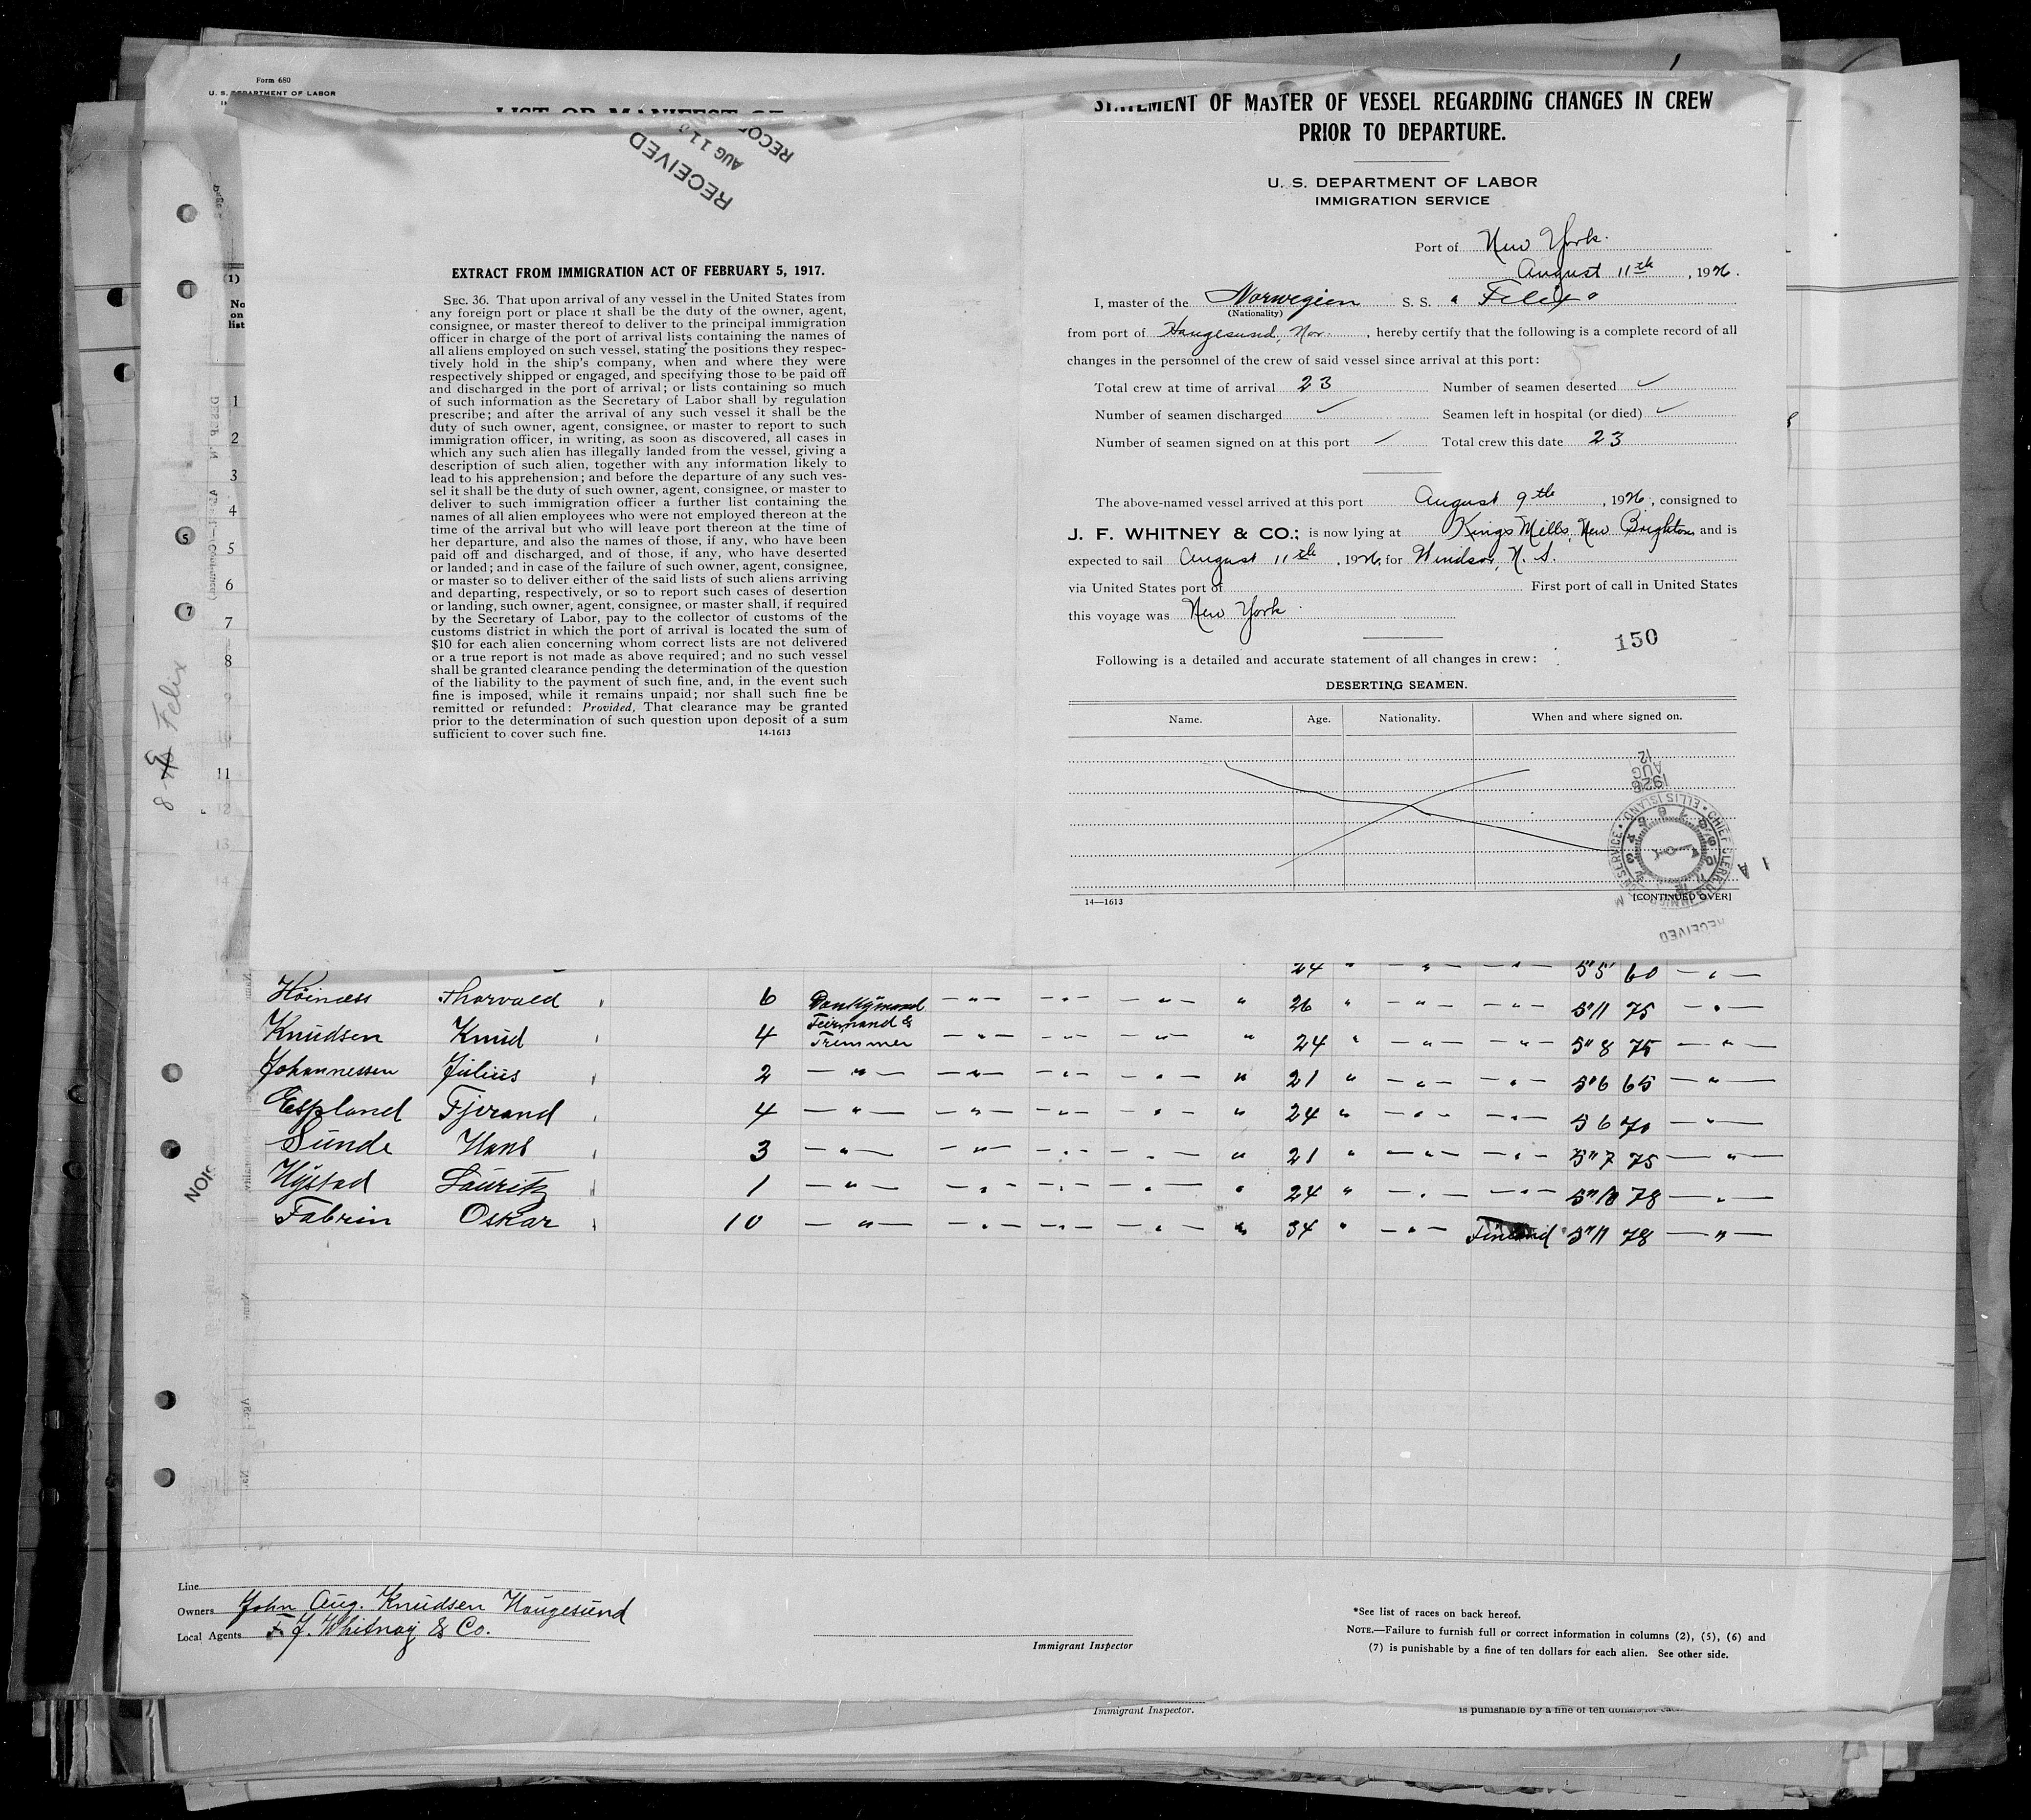 Form 680
U. S. DEPARTMENT OF LABOR
LIST OR MANIFEST OF
RECEIVED
AUG 11
(1)
No
on
list
1
2
3
4
5
6
7
8
9
10
11
12
13
14
8-9 Felix
EXTRACT FROM IMMIGRATION ACT OF FEBRUARY 5, 1917.
SEC. 36. That upon arrival of any vessel in the United States from
any foreign port or place it shall be the duty of the owner, agent,
consignee, or master thereof to deliver to the principal immigration
officer in charge of the port of arrival lists containing the names of
all aliens employed on such vessel, stating the positions they respec-
tively hold in the ship's company, when and where they were
respectively shipped or engaged, and specifying those to be paid off
and discharged in the port of arrival; or lists containing so much
of such information as the Secretary of Labor shall by regulation
prescribe; and after the arrival of any such vessel it shall be the
duty of such owner, agent, consignee, or master to report to such
immigration officer, in writing, as soon as discovered, all cases in
which any such alien has illegally landed from the vessel, giving a
description of such alien, together with any information likely to
lead to his apprehension; and before the departure of any such ves-
sel it shall be the duty of such owner, agent, consignee, or master to
deliver to such immigration officer a further list containing the
names of all alien employees who were not employed thereon at the
time of the arrival but who will leave port thereon at the time of
her departure, and also the names of those, if any, who have been
paid off and discharged, and of those, if any, who have deserted
or landed; and in case of the failure of such owner, agent, consignee,
or master so to deliver either of the said lists of such aliens arriving
and departing, respectively, or so to report such cases of desertion
or landing, such owner, agent, consignee, or master shall, if required
by the Secretary of Labor, pay to the collector of customs of the
customs district in which the port of arrival is located the sum of
$10 for each alien concerning whom correct lists are not delivered
or a true report is not made as above required; and no such vessel
shall be granted clearance pending the determination of the question
of the liability to the payment of such fine, and, in the event such
fine is imposed, while it remains unpaid; nor shall such fine be
remitted or refunded: Provided, That clearance may be granted
prior to the determination of such question upon deposit of a sum
sufficient to cover such fine. 14-1613
STATEMENT OF MASTER OF VESSEL REGARDING CHANGES IN CREW
PRIOR TO DEPARTURE.
U. S. DEPARTMENT OF LABOR
IMMIGRATION SERVICE
Port of New York.
August 11th, 1926.
I, master of the Norwegian S. S. "Felix"
(Nationality)
from port of Haugesund, Nor., hereby certify that the following is a complete record of all
changes in the personnel of the crew of said vessel since arrival at this port:
Total crew at time of arrival 23 Number of seamen deserted ✓
Number of seamen discharged ✓ Seamen left in hospital (or died) ✓
Number of seamen signed on at this port ✓ Total crew this date 23
The above-named vessel arrived at this port August 9th, 1926, consigned to
J. F. WHITNEY & CO.; is now lying at Kings Mills, New Brighton and is
expected to sail August 11th, 1926, for Windsor, N. S.
via United States port of First port of call in United States
this voyage was New York.
150
Following is a detailed and accurate statement of all changes in crew:
DESERTING SEAMEN.
Name. Age. Nationality. When and where signed on.
1926 AUG 12
CHIEF CLERK U.S. IMMIGRATION SERVICE • ELLIS ISLAND.
RECEIVED
14—1613 [CONTINUED OVER]
24 " — " — — " — 5'5 60 — " —
Höiness Thorvald 6 Donkymand — " — — " — — " — " 26 " — " — — " — 5"11 75 — " —
Knudsen Knud 4 Feirmand & Tremmer — " — — " — — " — " 24 " — " — — " — 5"8 75 — " —
Johannessen Julius 2 — " — — " — — " — — " — " 21 " — " — — " — 5"6 65 — " —
Espland Tjerand 4 — " — — " — — " — — " — " 24 " — " — — " — 5 6 70 — " —
Sunde Hans 3 — " — — " — — " — — " — " 21 " — " — — " — 5"7 75 — " —
Hystad Lauritz 1 — " — — " — — " — — " — " 24 " — " — — " — 5"10 78 — " —
Fabrin Oskar 10 — " — — " — — " — — " — " 34 " — " — Finland 5"11 78 — " —
Line
Owners John Aug. Knudsen Haugesund
Local Agents F. J. Whitnay & Co.
Immigrant Inspector
*See list of races on back hereof.
NOTE.—Failure to furnish full or correct information in columns (2), (5), (6) and
(7) is punishable by a fine of ten dollars for each alien. See other side.
Immigrant Inspector.
is punishable by a fine of ten dollars for each